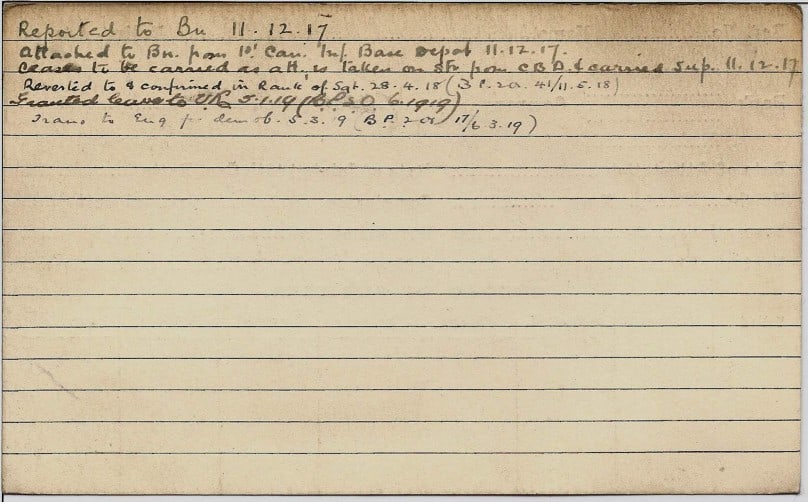 Reported to Bn 11.12.17
Attached to Bn. from 1st Can. Inf. Base Depot 11.12.17.
Ceases to be carried as att, is taken on Str from C B D. & carried Sup. 11.12.17
Reverted to & confirmed in Rank of Sgt. 28.4.18 (B P. 2 O. 41/11.5.18)
Granted leave to UK 5.1.19 (B P. 2 O. 6.1919)
Trans to Eng for demob. 5.3.19 (B P. 2 O. 17/6.3.19)